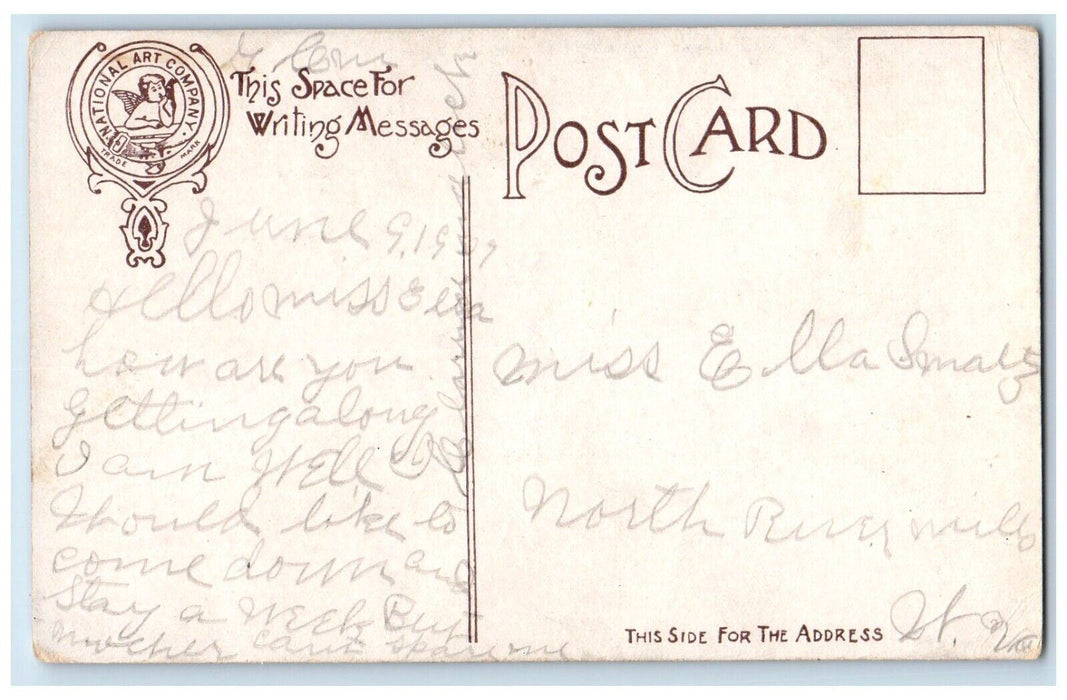 NATIONAL ART COMPANY.
TRADE MARK
This Space For
Writing Messages
POST CARD
June 9, 1909
Hello miss Ella
how are you
getting along
I am Well I
Should like to
come down and
Stay a Week But
mother cant spare me
miss Ella Smaltz
North River mills
W. Va
THIS SIDE FOR THE ADDRESS